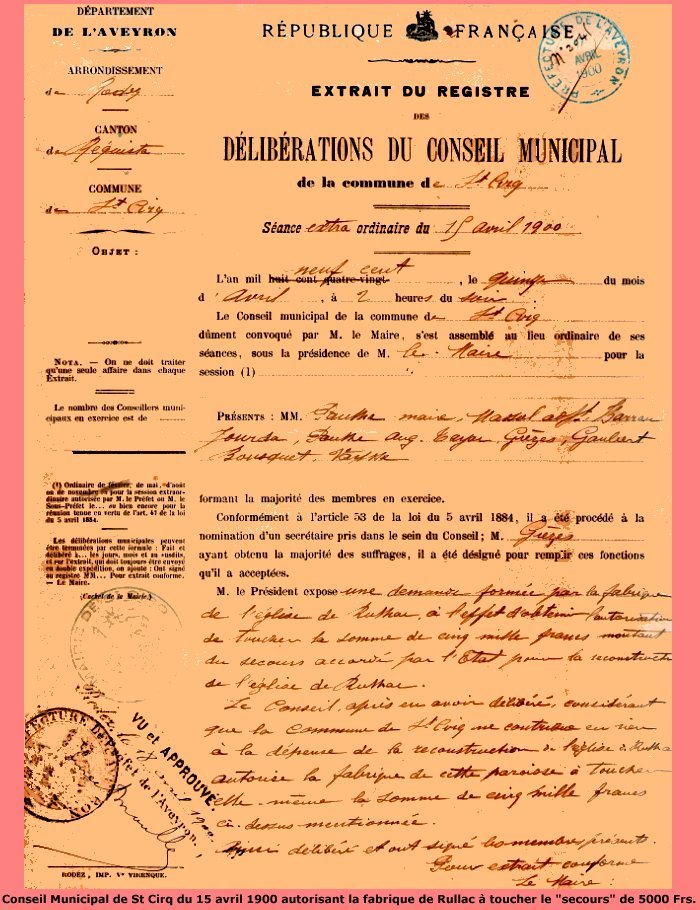 DÉPARTEMENT
DE L'AVEYRON
ARRONDISSEMENT
de Rodez
CANTON
de Réquista
COMMUNE
de St Cirq
OBJET :
NOTA. — On ne doit traiter
qu'une seule affaire dans chaque
Extrait.
Le nombre des Conseillers muni-
cipaux en exercice est de
(1) Ordinaire de février, de mai, d'août
ou de novembre ou pour la session extraor-
dinaire autorisée par M. le Préfet ou M. le
Sous-Préfet le... ou bien encore pour la
réunion tenue en vertu de l'art. 47 de la loi
du 5 avril 1884.
Les délibérations municipales peuvent
être terminées par cette formule : Fait et
délibéré à... les jours, mois et an susdits,
et sur l'extrait, qui doit toujours être envoyé
en double expédition, on ajoute : Ont signé
au registre MM... Pour extrait conforme.
— Le Maire.
(Cachet de la Mairie.)
VU et APPROUVÉ
Rodez, le avril 1900
Préfet de l'Aveyron,
RODEZ, IMP. Ve VIRENQUE.
RÉPUBLIQUE FRANÇAISE
PRÉFECTURE DE L'AVEYRON
AVRIL
1900
EXTRAIT DU REGISTRE
DES
DÉLIBÉRATIONS DU CONSEIL MUNICIPAL
de la commune de St Cirq
Séance extra ordinaire du 15 avril 1900
L'an mil huit cent quatre-vingt neuf cent, le quinze du mois
d'avril, à 2 heures du soir
Le Conseil municipal de la commune de St Cirq
dûment convoqué par M. le Maire, s'est assemblé au lieu ordinaire de ses
séances, sous la présidence de M. le Maire pour la
session (1)
PRÉSENTS : MM. maire, adjt. Barrau
Jourda, Aug. Gaubert
Bousquet,
formant la majorité des membres en exercice.
Conformément à l'article 53 de la loi du 5 avril 1884, il a été procédé à la
nomination d'un secrétaire pris dans le sein du Conseil ; M. Grèzes
ayant obtenu la majorité des suffrages, il a été désigné pour remplir ces fonctions
qu'il a acceptées.
M. le Président expose une demande formée par la fabrique
de l'église de Rullac, à l'effet d'obtenir l'autorisation
de toucher la somme de cinq mille francs montant
du secours accordé par l'Etat pour la reconstruction
de l'église de Rullac.
Le Conseil, après en avoir délibéré, considérant
que la commune de St Cirq ne contribue en rien
à la dépense de la reconstruction de l'église de Rullac
autorise la fabrique de cette paroisse à toucher
elle-même la somme de cinq mille francs
ci-dessus mentionnée.
Ainsi délibéré et ont signé les membres présents.
Pour extrait conforme
Le Maire :
Conseil Municipal de St Cirq du 15 avril 1900 autorisant la fabrique de Rullac à toucher le "secours" de 5000 Frs.